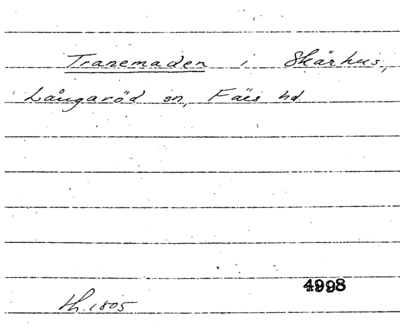 Tranemaden i Skärhus,
Långaröd sn, Färs hd
4998
th. 1805